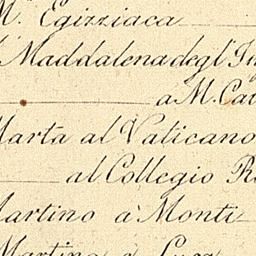 M. Egizziaca
Maddalena degl'
a M.
Marta al Vaticano
al Collegio
Martino a' Monti
Martino